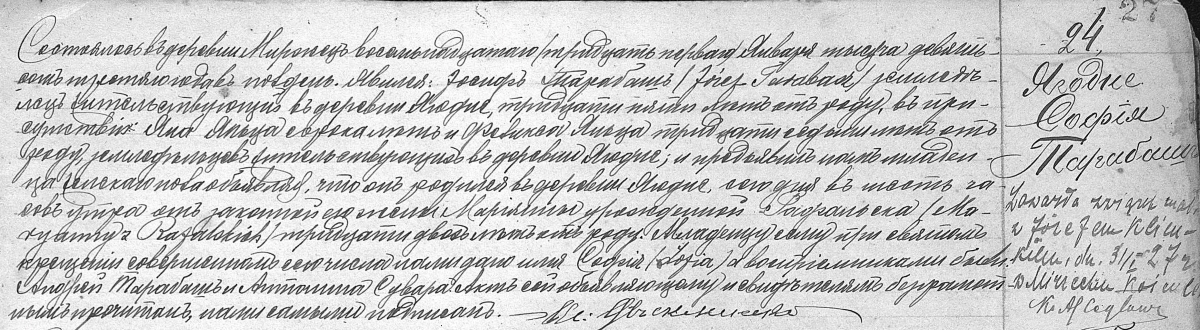 Состоялось въ деревни Миронецъ восемнадцатаго /тридцать перваго/ Января тысяча девять-
сотъ третяго года въ полдень. Явился: Іосифъ Тарабашъ /Józef Tarabasz/ земледѣ-
лецъ жительствующий въ деревни Ягодне, тридцати пяти лѣтъ отъ роду, въ при-
сутствіи Яна Яльца сорока лѣтъ и Феликса Яльца тридцати седьми лѣтъ отъ
роду, земледѣльцевъ жительствующихъ въ деревни Ягодне; и предъявилъ намъ младен-
ца женскаго пола объявляя, что онъ родился въ деревни Ягодне, сегодня въ шесть ча-
совъ утра отъ законной его жены Маріянны урожденной Рафальска /Ma-
ryanny z Rafalskich/ тридцати двохъ лѣтъ отъ роду. Младенцу сему при святомъ
крещеніи совершенномъ сего числа нами дано имя Софія /Zofia/ а воспріемниками были
Андрей Тарабашъ и Антонина Сувара. Актъ сей объявляющему и свидѣтелямъ безграмот-
нымъ прочитанъ, нами самыми подписанъ.
27
24.
Ягодне
Софія
Тарабашъ
Zawarła związek mał
z Józefem Klim-
dn. 31/I 27 r
w kościele
Ks.